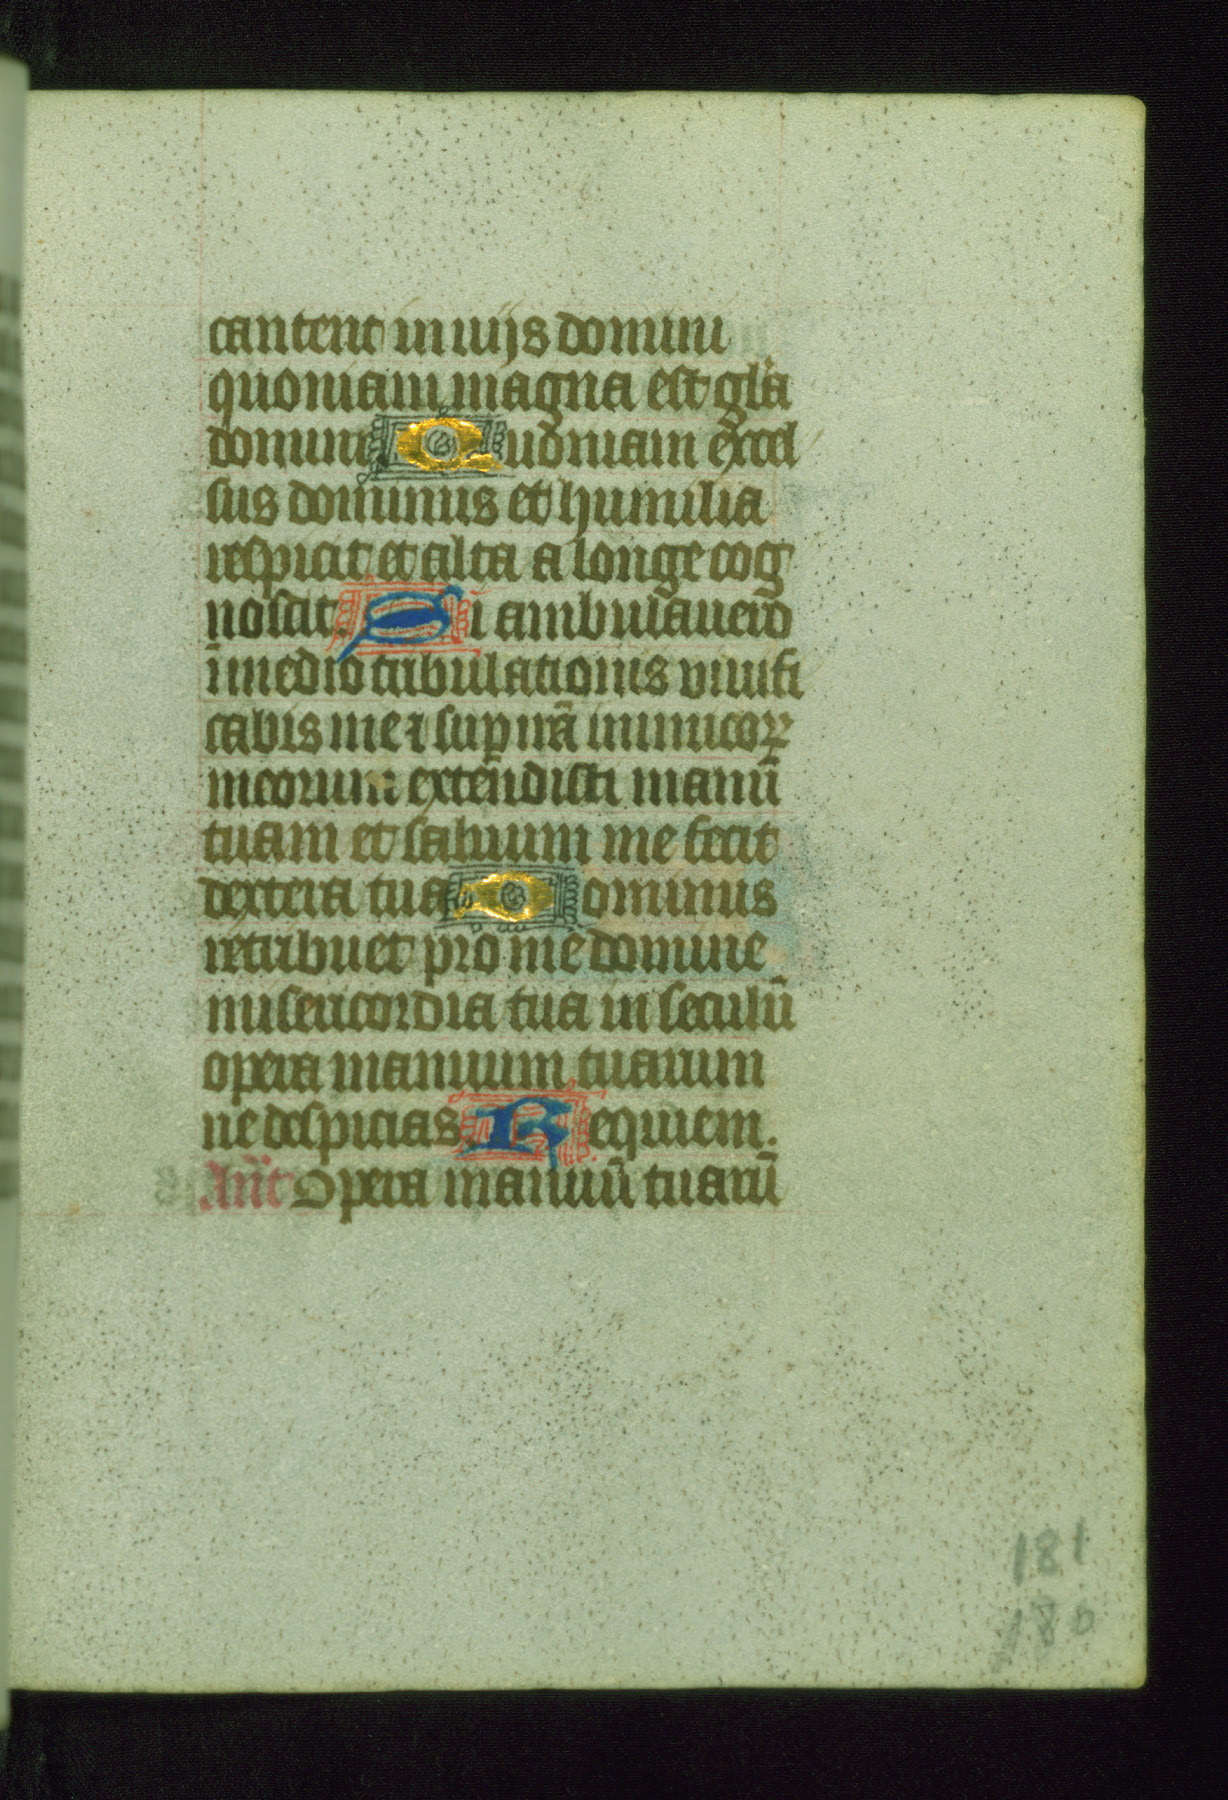 cantent in uijs domini
quoniam magna est gl̄a
domini Quoniam excel
sus dominus et humilia
respicit et alta a longe cog
noscit. Si ambulauero
ī medio tribulationis viuifi
cabis me ⁊ sup irā inimicoꝝ
meorum exten̄disti manū
tuam et saluum me fecit
dextera tua Dominus
retribuet pro me domine
misericordia tua in seculū
opera manuum tuarum
ne despicias. Requiem.
An̄t Opera manuū tuarū
181
180